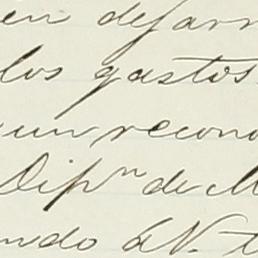 en desarr
los gastos
un recono
Dipn de M
ndo á V. t